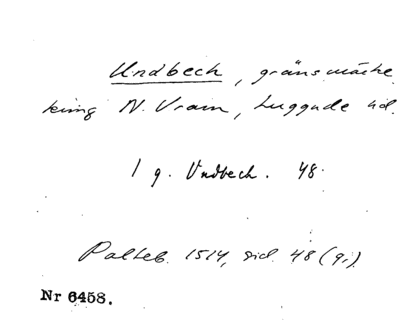 Undbeck, gränsmärke
kring N. Vram, Luggude hd.
1 g. Undbech. 48.
Palteb. 1514, sid. 48 (g:).
Nr 6458.